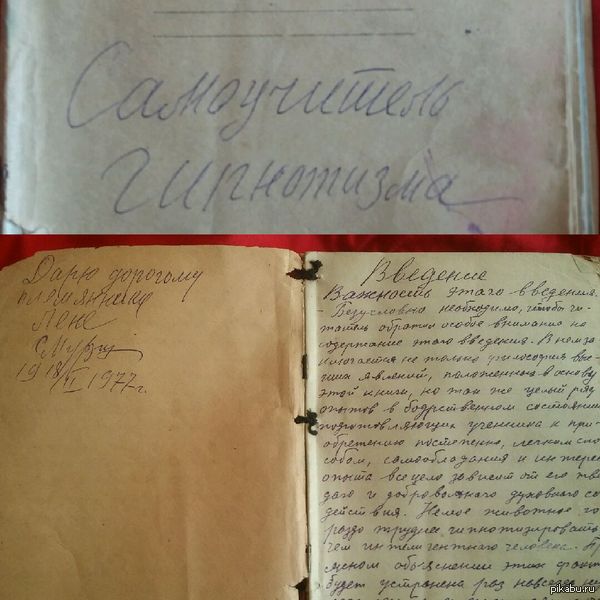 Самоучитель
гипнотизма
Дарю дорогому
племяннику
Лене
19 18/VI 1977г.
Введение
Важность этого введения.
- Безусловно необходимо, чтобы чи-
татель обратил особое внимание на
содержание этого введения. В нем за
ключается не только философия выс-
ших явлений, положенного в основу
этой книги, но так же целый ряд
опытов в бодрственном состоянии
подготовляющих ученника к при-
обретению постепенно, легким спо
собом, самообладания и
опыта всецело зависит от его
и добровольного духовного со
действия. Немое животное го
раздо труднее гипнотизировать
чем интелигентного человека. 
ясном объяснении этих факт
будет устранена раз навсегда
pikabu.ru